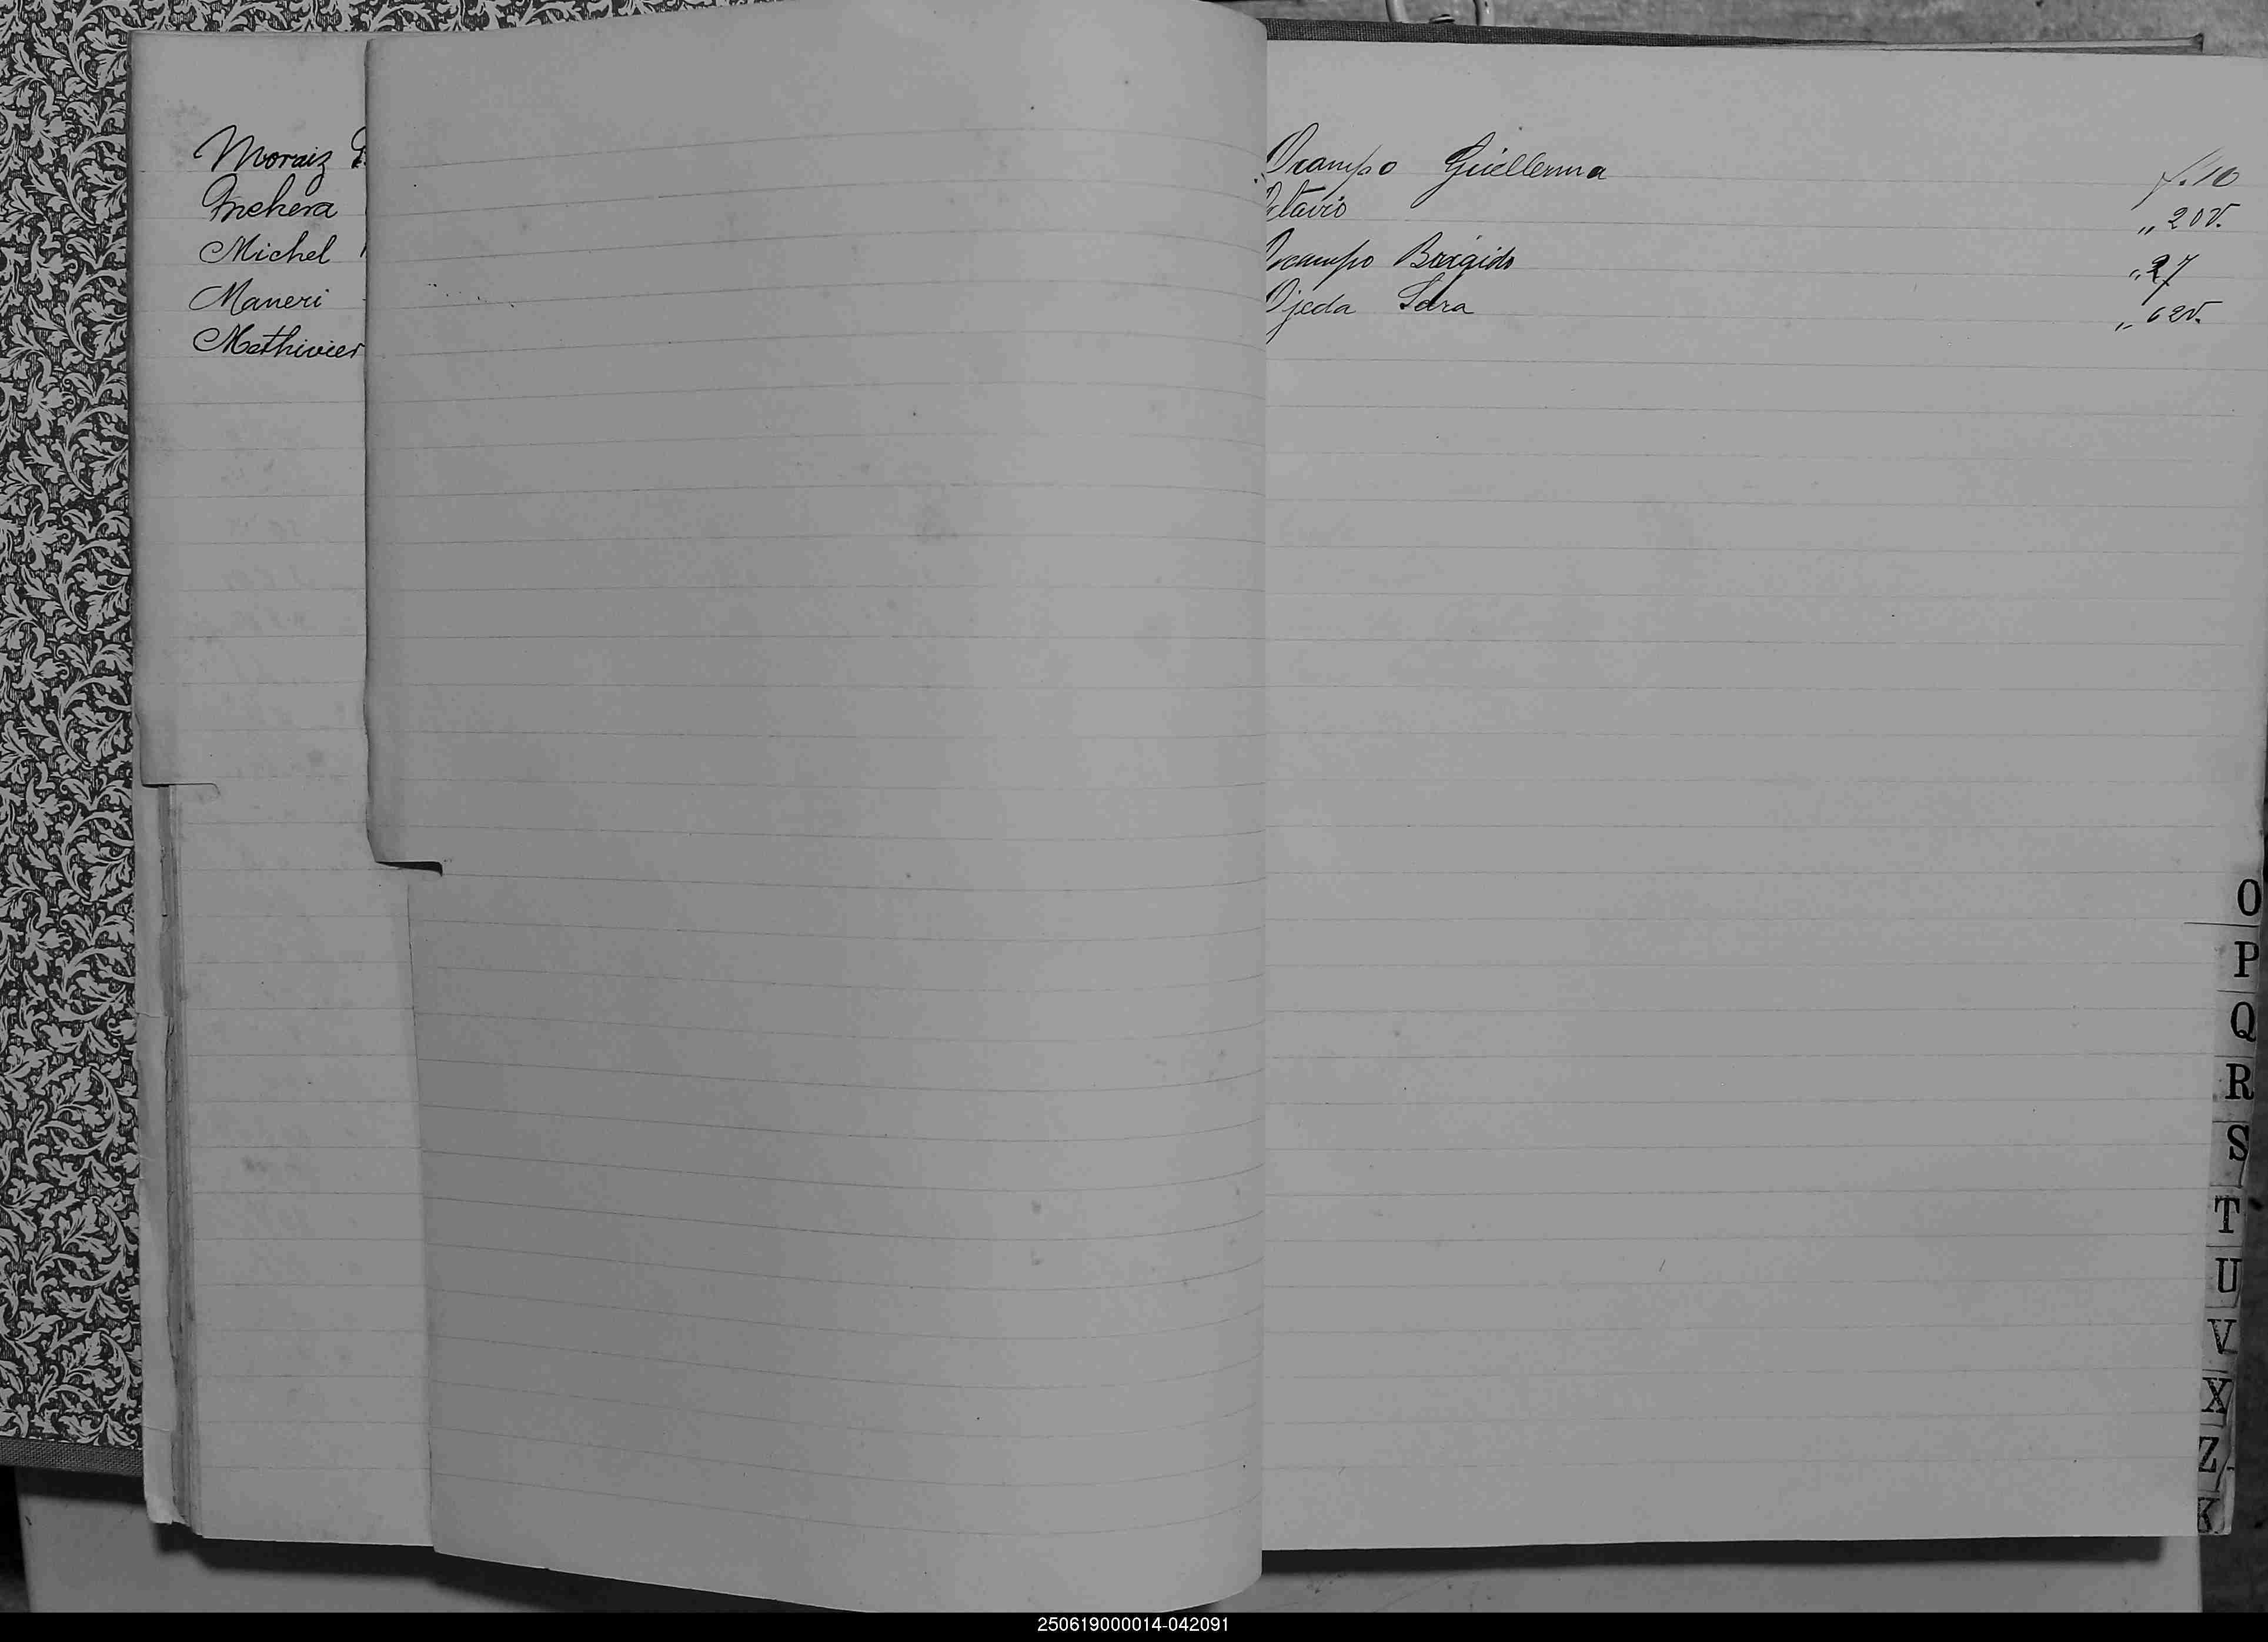 Moraiz
Michel
Maneri
Mathivier
Ocampo Guillerma f. 10
Octavio „ 20v.
Ocampo Brígido „ 27
Ojeda Sara „ 62v.
O
P
Q
R
S
T
U
V
X
Z
K
250619000014-042091